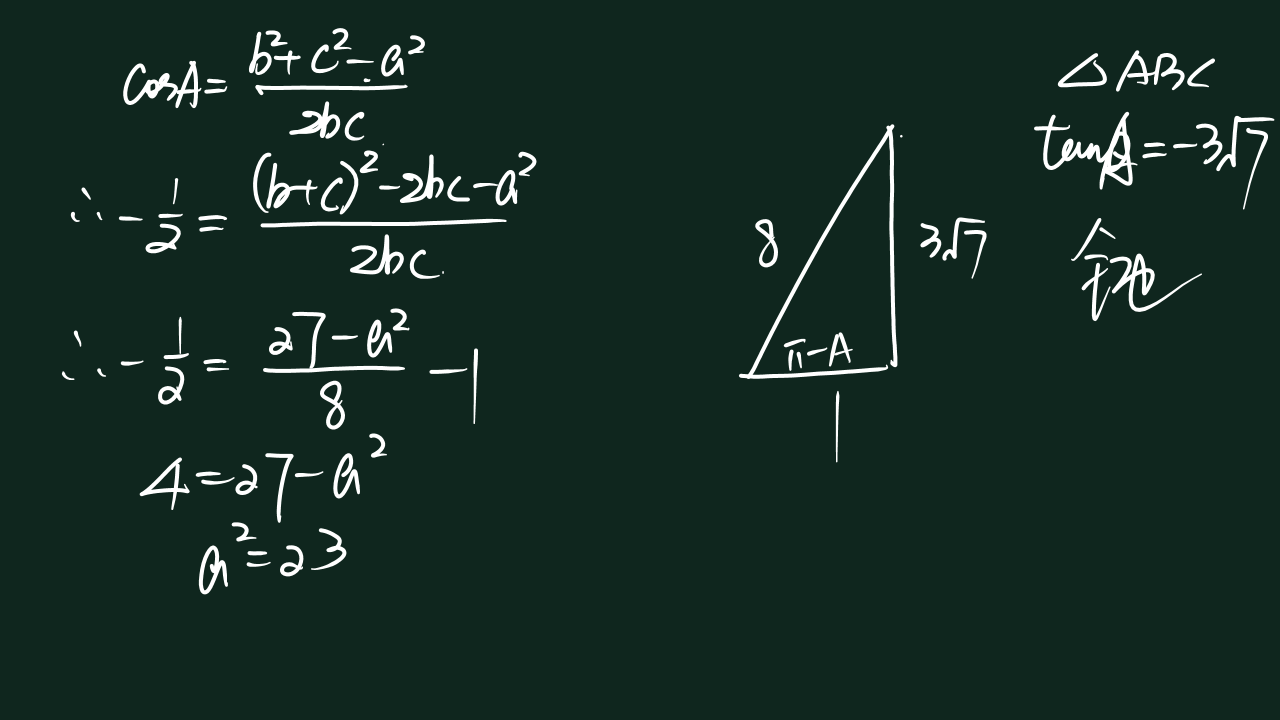 cosA = \frac{b²+c²-a²}{2bc}
∴ -\frac{1}{2} = \frac{(b+c)²-2bc-a²}{2bc}
∴ -\frac{1}{2} = \frac{27-a²}{8} -1
4=27-a²
a²=23
8
3√7
π-A
1
△ABC
tanA=-3√7